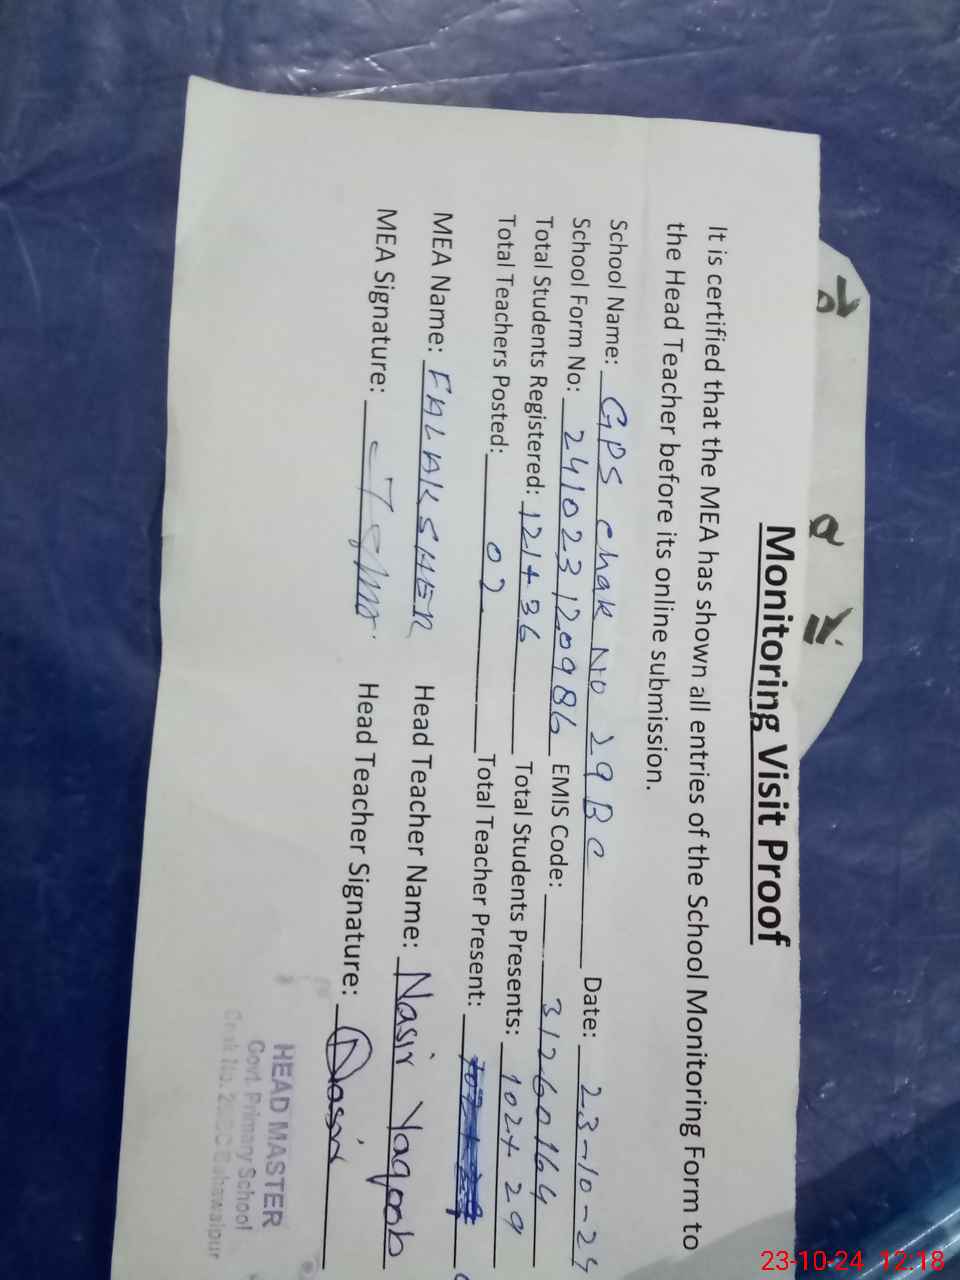 Monitoring Visit Proof
It is certified that the MEA has shown all entries of the School Monitoring Form to
the Head Teacher before its online submission.
School Name: GPS Chak No 29 BC Date: 23-10-24
School Form No: 24102312 0986 EMIS Code: 31260164
Total Students Registered: 121+36 Total Students Presents: 102+29
Total Teachers Posted: 02 Total Teacher Present:
MEA Name: FALAKSHER Head Teacher Name: Nasir Yaqoob
MEA Signature: Head Teacher Signature: Nasir
HEAD MASTER
Govt. Primary School
Chak No. 29/BC Bahawalpur
23-10-24 12:18